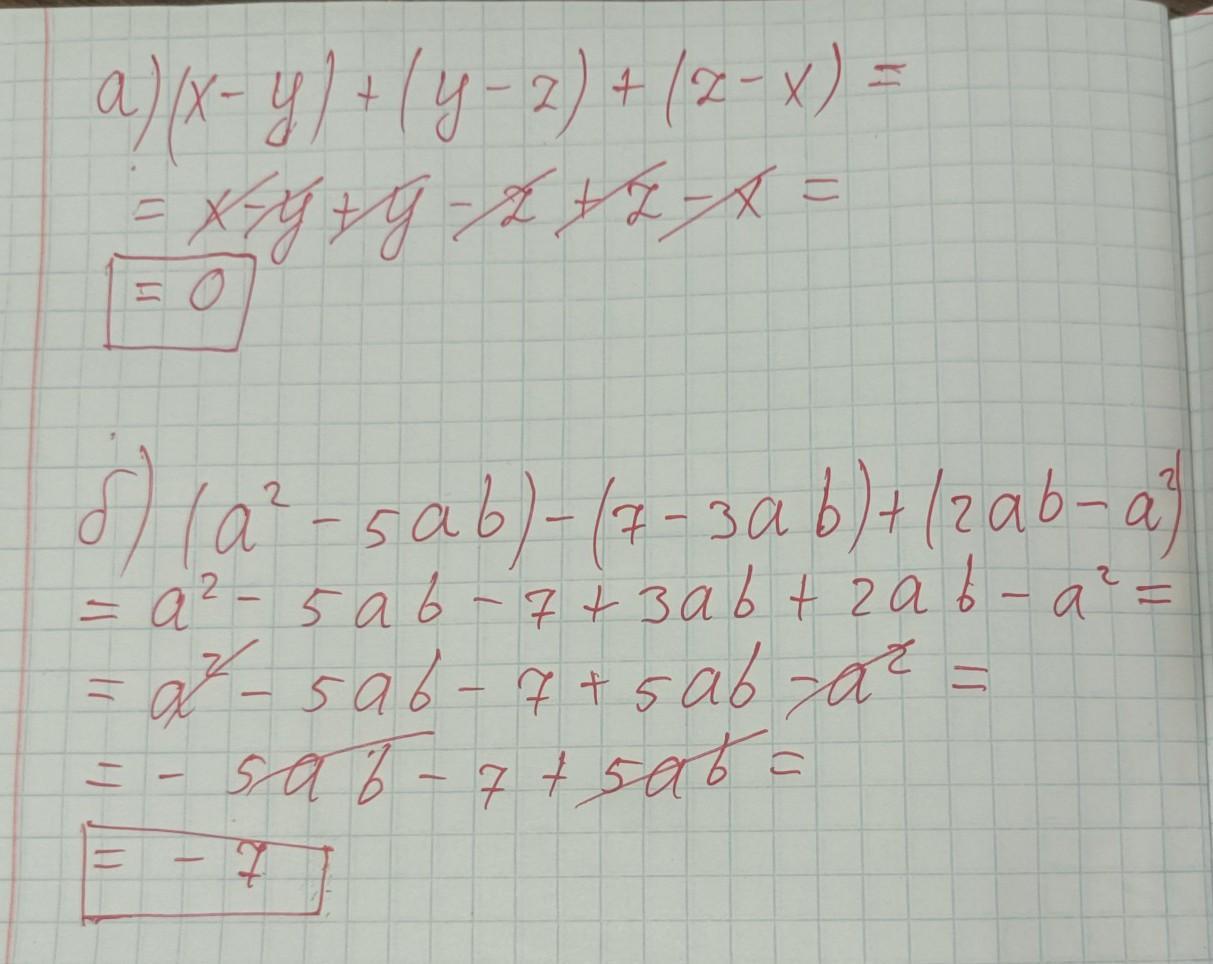 а) (x - y) + (y - z) + (z - x) =
= x - y + y - z + z - x =
= 0
б) (a² - 5ab) - (7 - 3ab) + (2ab - a²)
= a² - 5ab - 7 + 3ab + 2ab - a² =
= a² - 5ab - 7 + 5ab - a² =
= - 5ab - 7 + 5ab =
= - 7